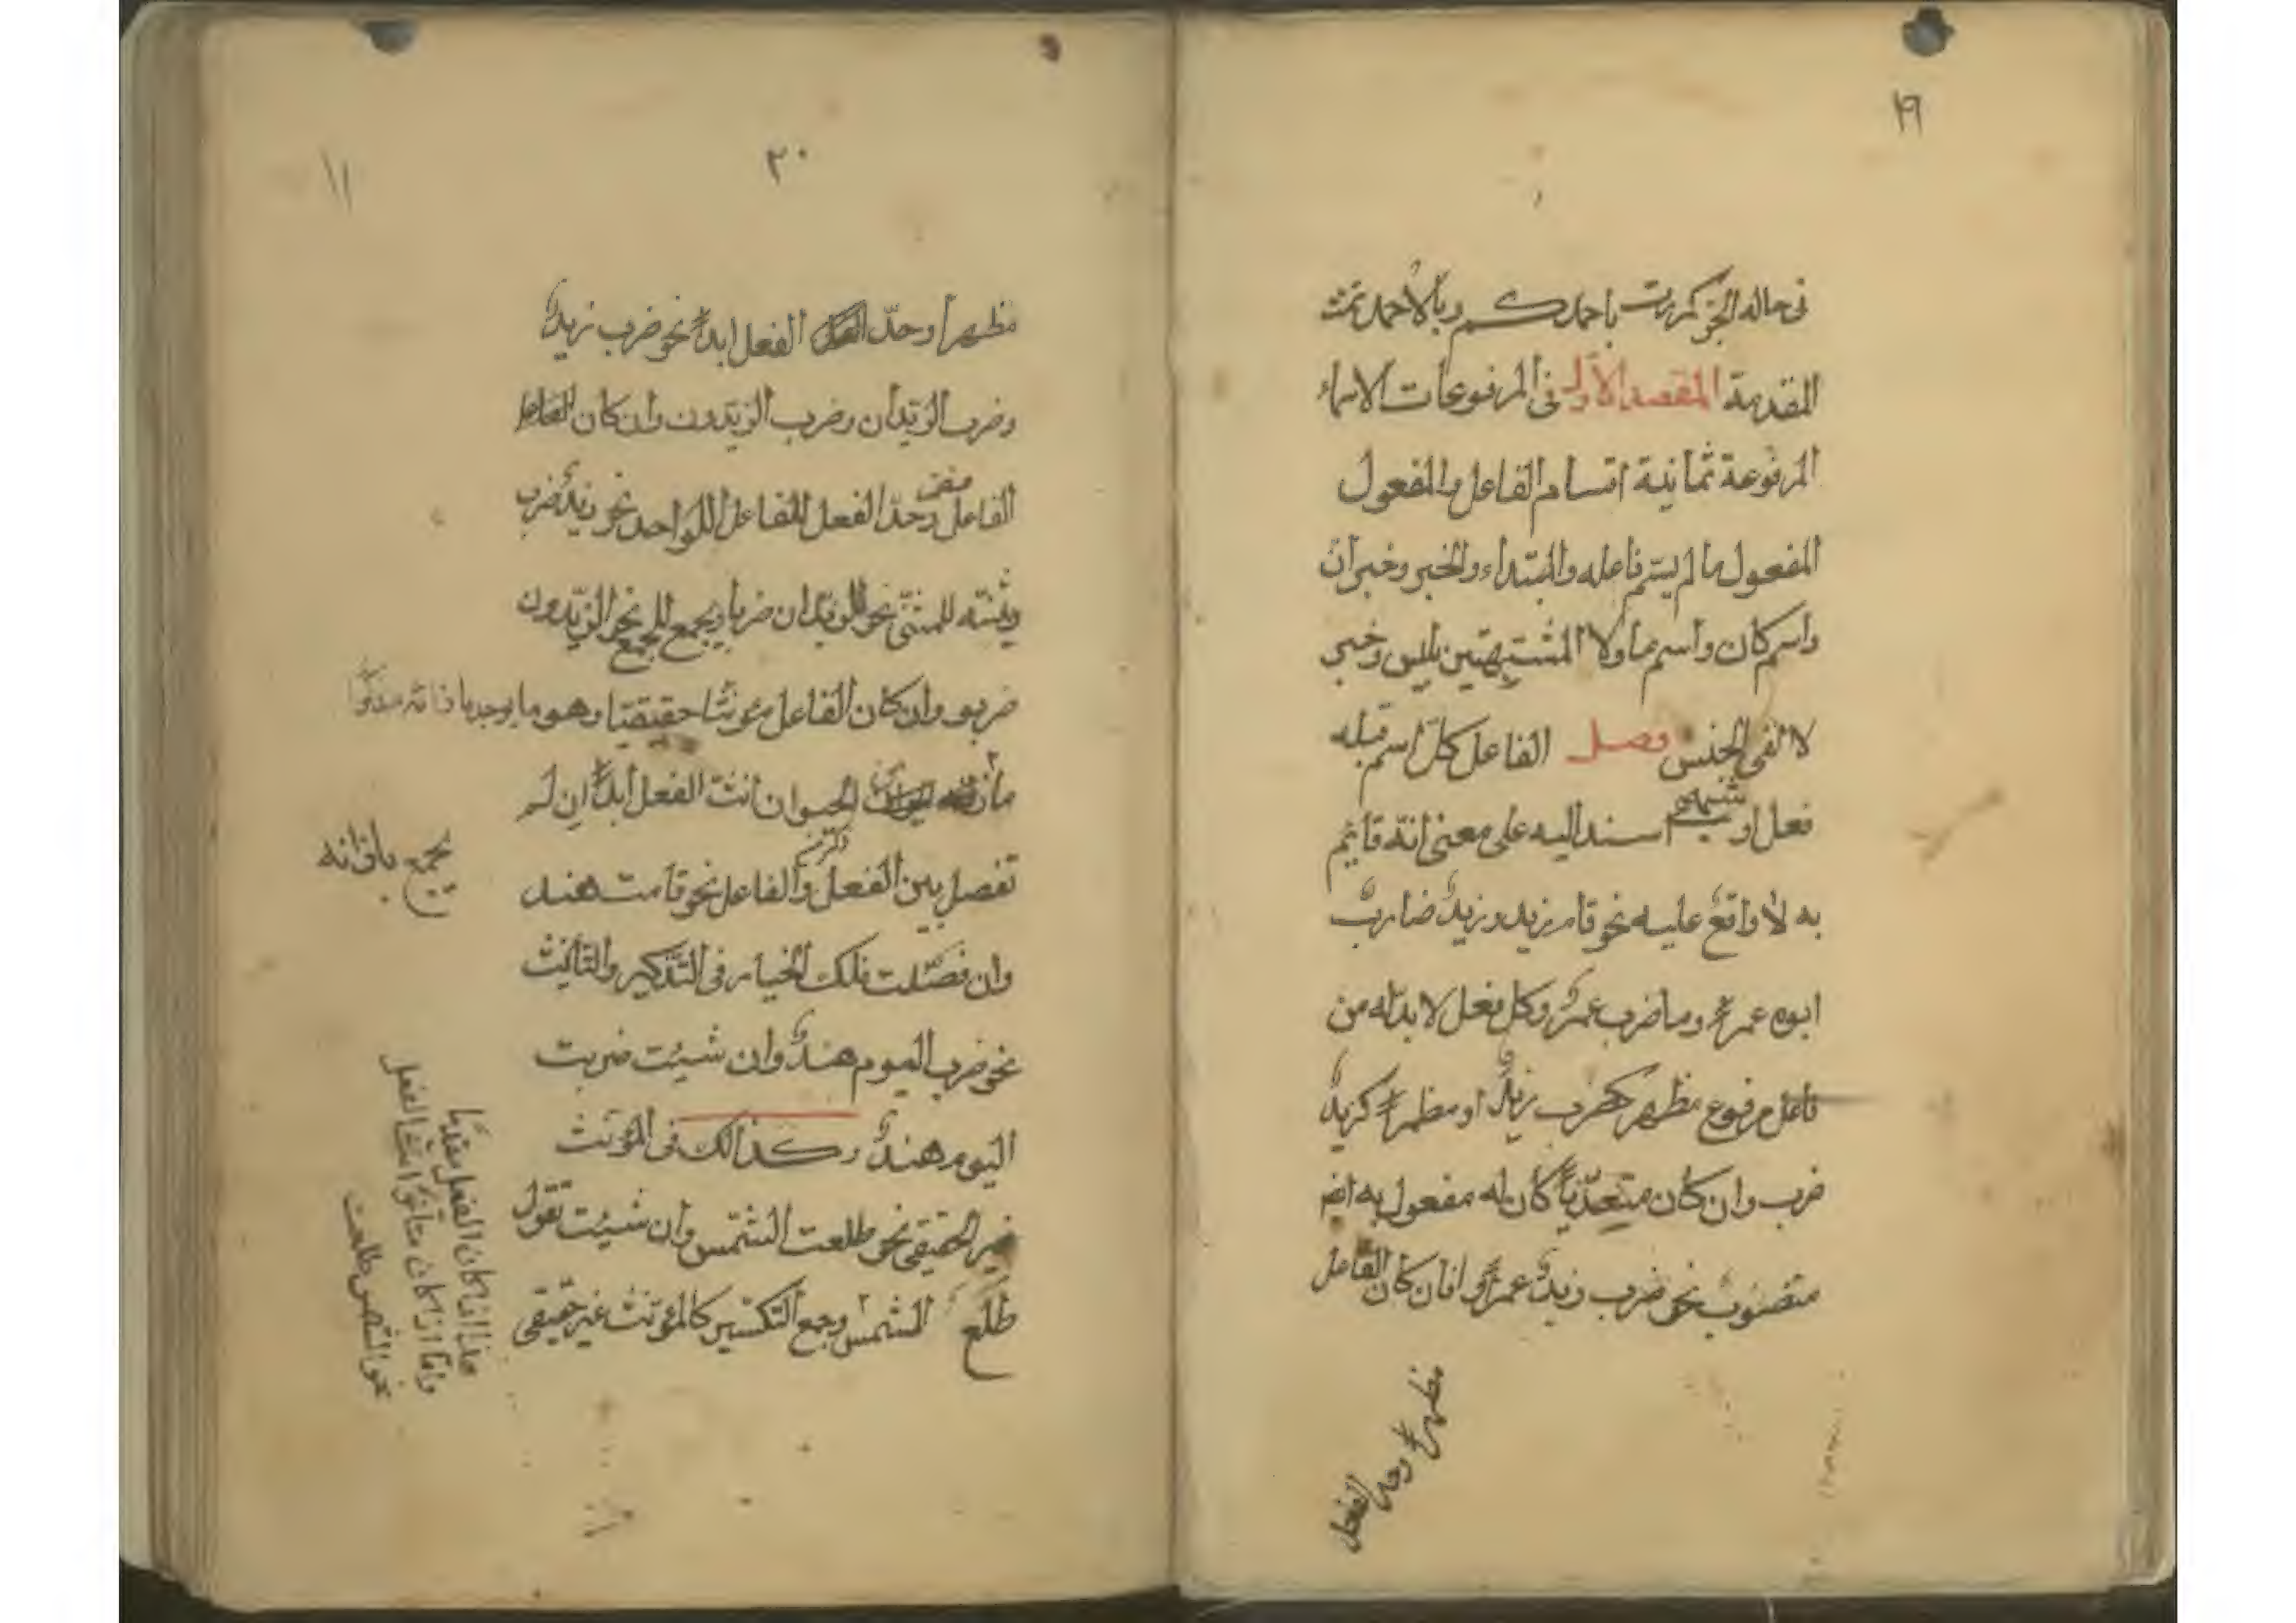 ١٩
فى حالة الجر كمررت باحمدكم وبالاحمد تمت
المقدمة المقصد الاول فى المرفوعات الاسماء
المرفوعة ثمانية اقسام الفاعل والمفعول
المفعول ما لم يسم فاعله والمبتداء والخبر وخبر ان
واسم كان واسم ما ولا المشتبهتين بليس وخبر
لا لنفى الجنس فصل الفاعل كل اسم قبله
فعل او شبهه اسند اليه على معنى انه قائم
به لا واقع عليه نحو قام زيد وزيد ضارب
ابوه عمرا وما ضرب عمرو وكل فعل لا بد له من
فاعل مرفوع مظهر كضرب زيد او مظمرا كزيد
ضرب وان كان متعديا كان له مفعول به ايضا
منصوب نحو ضرب زيد عمرا وان كان الفاعل
مظهرا وحد الفعل
٢٠
١١
مظهرا وحد الفعل ابدا نحو ضرب زيد
وضرب الزيدان وضرب الزيدون وان كان الفاعل
الفاعل مضمرا وحد الفعل للفاعل الواحد نحو زيد ضرب
ويثنيه للمثنى نحو الزيدان ضربا ويجمع للجمع نحو الزيدون
ضربو وان كان الفاعل مؤنثا حقيقيا وهو ما يوجد باذائه مذكرا
من الحيوان انث الفعل ابدا ان لم
تفصل بين الفعل والفاعل نحو قامت هند
وان فصلت فلك الخيار فى التذكير والتأنيث
نحو ضرب اليوم هند وان شيئت ضربت
اليوم هند وكذالك فى المؤنث
غير الحقيقى نحو طلعت الشمس وان شيئت تقول
طلع الشمس وجمع التكسير كالمؤنث غير حقيقى
هذا اذا كان الفعل مقدما
واما اذا كان متأخرا انث الفعل
نحو الشمس طلعت